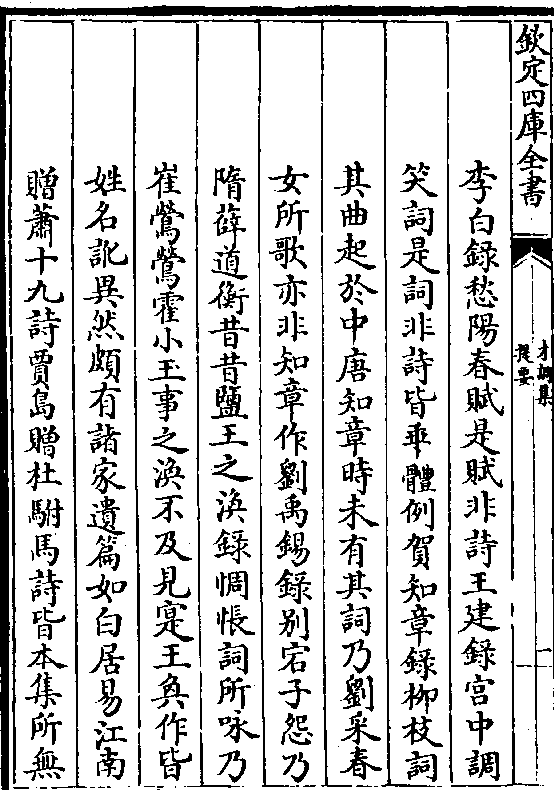 欽定四庫全書
才調集
提要
一
李白録愁陽春賦是賦非詩王建録宫中調
笑詞是詞非詩皆乖體例賀知章録柳枝詞
其曲起於中唐知章時未有其詞乃劉采春
女所歌亦非知章作劉禹錫録别宕子怨乃
隋薛道衡昔昔鹽王之渙録惆悵詞所咏乃
崔鶯鶯霍小玉事之渙不及見寔王奐作皆
姓名訛異然頗有諸家遺篇如白居易江南
贈蕭十九詩賈島贈杜駙馬詩皆本集所無